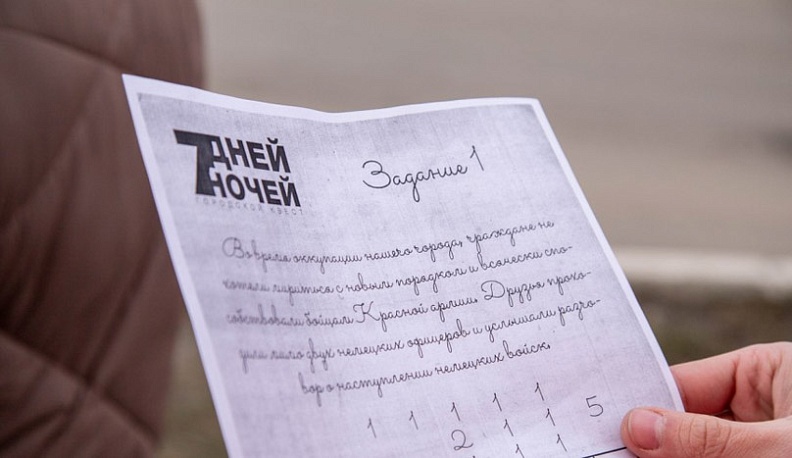 7 ДНЕЙ
НОЧЕЙ
ГОРОДСКОЙ КВЕСТ
Задание 1
Во время оккупации нашего города, граждане не
хотели мириться с новым порядком и всячески спо-
собствовали бойцам Красной армии. Друзья прохо-
дили мимо двух немецких офицеров и услышали разго-
вор о наступлении немецких войск.
1 1 1 1 1
2 1 1 5
1 1